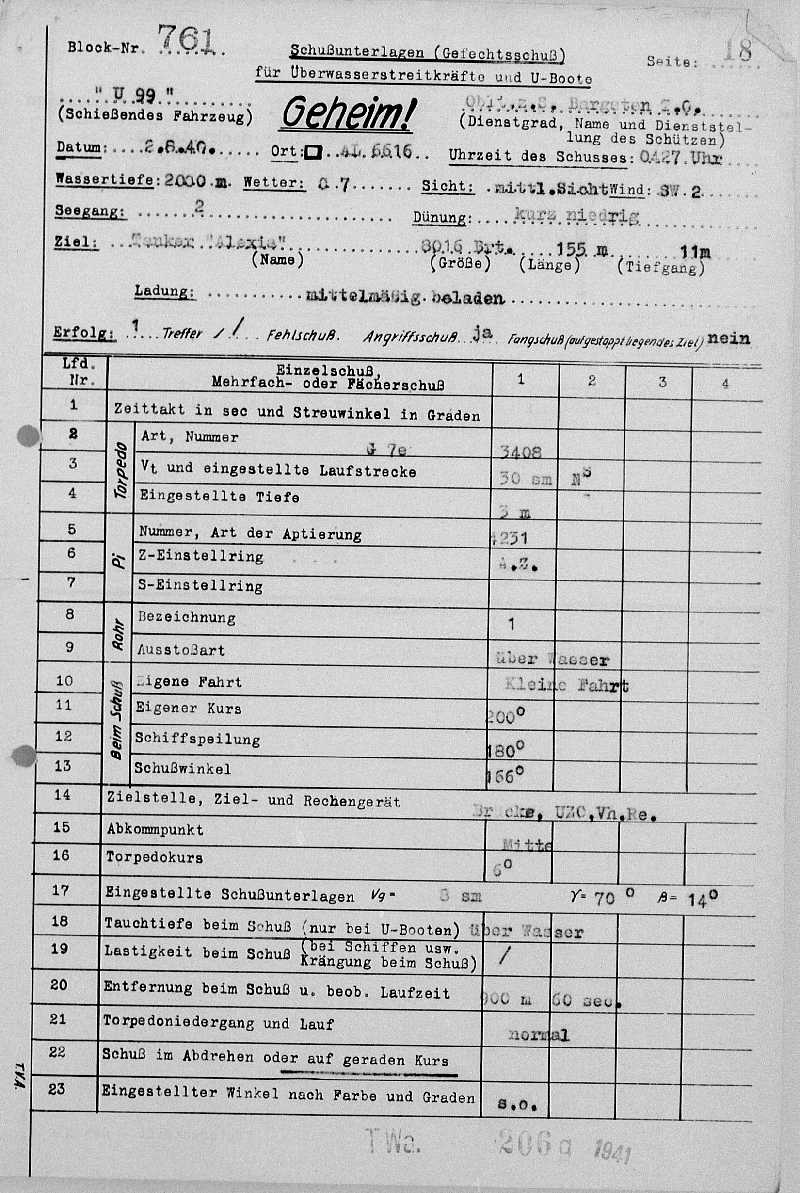 Block-Nr. 761
Schußunterlagen (Gefechtsschuß)
Seite: 18
für Überwasserstreitkräfte und U-Boote
"U 99"
(Schießendes Fahrzeug)
Geheim!
Oblt.z.S. Bargsten I.O.
(Dienstgrad, Name und Dienststellung des Schützen)
Datum: 2.8.40. Ort: AL 6616 Uhrzeit des Schusses: 0427 Uhr
Wassertiefe: 2000 m. Wetter: 0.7 Sicht: mittl.Sicht Wind: SW. 2
Seegang: 2 Dünung: kurz niedrig
Ziel: Tanker "Alexia" 8016 Brt. 155 m 11m
(Name) (Größe) (Länge) (Tiefgang)
Ladung: mittelmäßig beladen
Erfolg: 1 Treffer / / Fehlschuß. Angriffsschuß ja Fangschuß (auf gestoppt liegendes Ziel) nein
Lfd. Nr. Einzelschuß, Mehrfach- oder Fächerschuß 1 2 3 4
1 Zeittakt in sec und Streuwinkel in Graden
Torpedo
2 Art, Nummer G 7e 3408
3 Vt und eingestellte Laufstrecke 30 sm N S
4 Eingestellte Tiefe 3 m
Pi
5 Nummer, Art der Aptierung 4231
6 Z-Einstellring A.Z.
7 S-Einstellring
Rohr
8 Bezeichnung 1
9 Ausstoßart über Wasser
Beim Schuß
10 Eigene Fahrt Kleine Fahrt
11 Eigener Kurs 200°
12 Schiffspeilung 180°
13 Schußwinkel 166°
14 Zielstelle, Ziel- und Rechengerät Brücke, UZO,Vh.Re.
15 Abkommpunkt Mitte
16 Torpedokurs 6°
17 Eingestellte Schußunterlagen Vg= 8 sm γ= 70° β= 14°
18 Tauchtiefe beim Schuß (nur bei U-Booten) über Wasser
19 Lastigkeit beim Schuß (bei Schiffen usw. Krängung beim Schuß) /
20 Entfernung beim Schuß u. beob. Laufzeit 900 m 60 sec.
21 Torpedoniedergang und Lauf normal
22 Schuß im Abdrehen oder auf geraden Kurs
23 Eingestellter Winkel nach Farbe und Graden s.o.
T.V.A.
TWa. 206g 1941